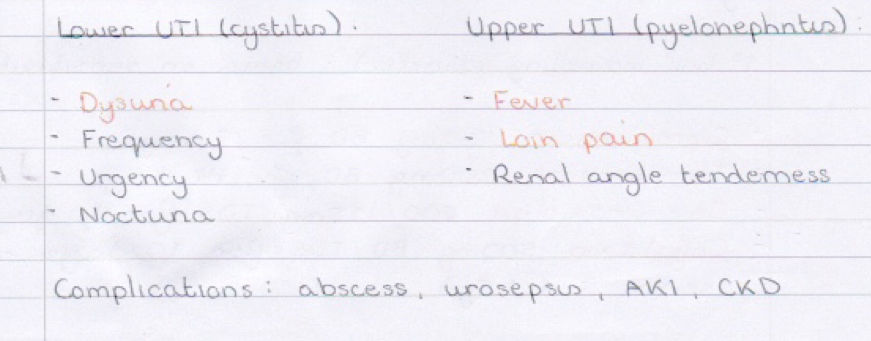 Lower UTI (cystitis).
Upper UTI (pyelonephritis):
- Dysuria
- Frequency
- Urgency
- Nocturia
- Fever
- Loin pain
- Renal angle tenderness
Complications: abscess, urosepsis, AKI, CKD